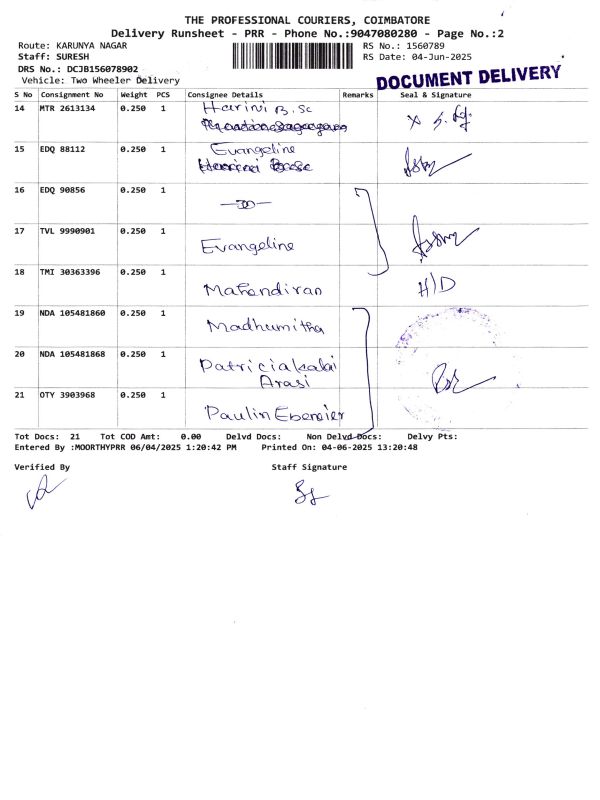 THE PROFESSIONAL COURIERS, COIMBATORE
Delivery Runsheet - PRR - Phone No.:9047080280 - Page No.:2
Route: KARUNYA NAGAR
RS No.: 1560789
Staff: SURESH
RS Date: 04-Jun-2025
DRS No.: DCJB156078902
Vehicle: Two Wheeler Delivery
DOCUMENT DELIVERY
S No Consignment No Weight PCS Consignee Details Remarks Seal & Signature
14 MTR 2613134 0.250 1 Harini B.Sc
15 EDQ 88112 0.250 1 Evangeline
16 EDQ 90856 0.250 1
17 TVL 9990901 0.250 1 Evangeline
18 TMI 30363396 0.250 1 Mahendiran H/D
19 NDA 105481860 0.250 1 Madhumitha
20 NDA 105481868 0.250 1 Patricia kalai
Arasi
21 OTY 3903968 0.250 1 Paulin Ebenezer
Tot Docs: 21 Tot COD Amt: 0.00 Delvd Docs: Non Delvd Docs: Delvy Pts:
Entered By :MOORTHYPRR 06/04/2025 1:20:42 PM Printed On: 04-06-2025 13:20:48
Verified By Staff Signature